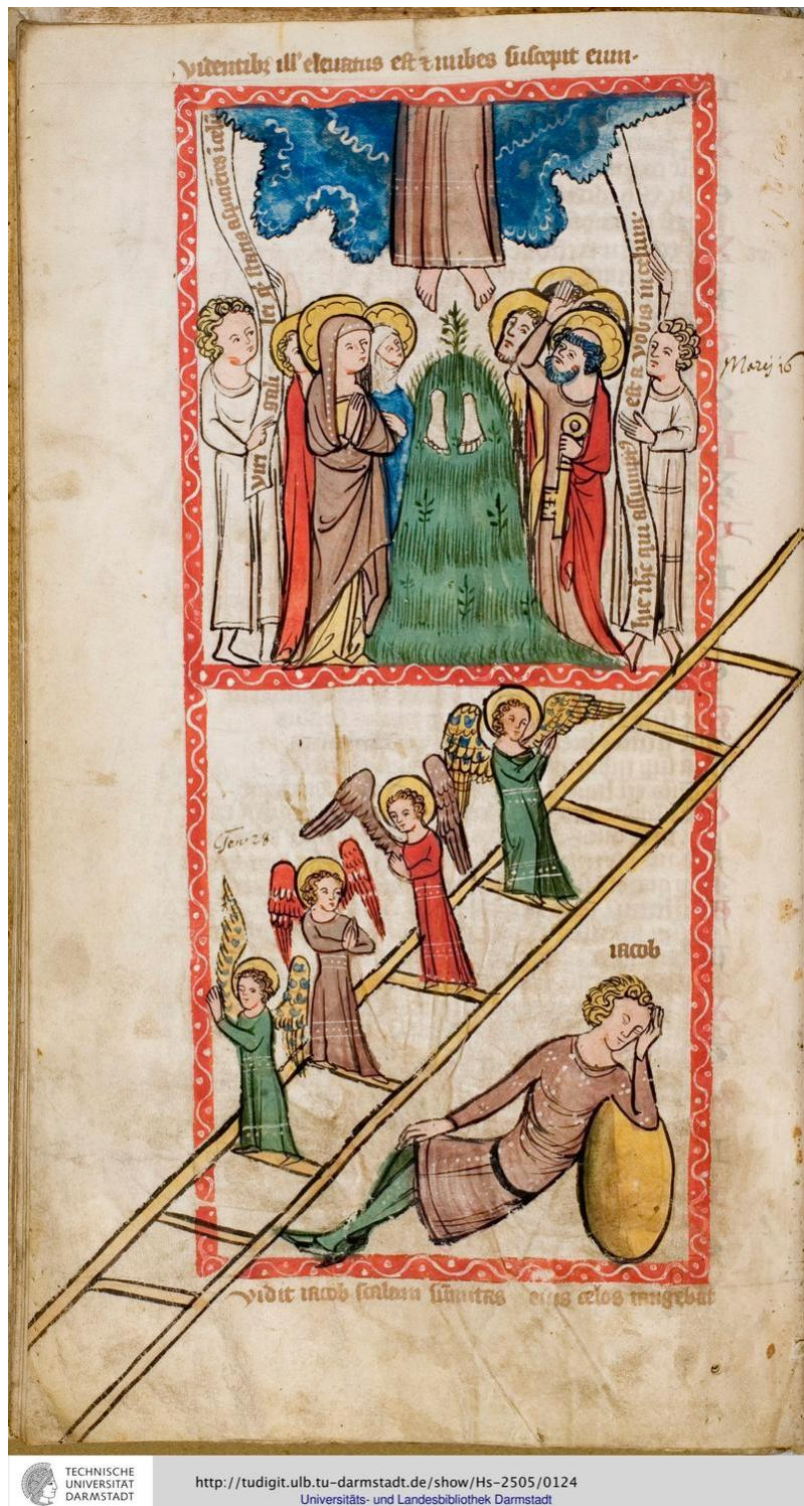 videntibꝫ ill' eleuatus est ⁊ nubes suscepit eum·
viri gali lei statis aspicientes
hic ihc qui assumpt᷒ est a vobis in celum·
Marci 16
Gen· 28
iacob
vidit iacob scalam sumitas eius celos tangebat
TECHNISCHE
UNIVERSITÄT
DARMSTADT
http://tudigit.ulb.tu-darmstadt.de/show/Hs-2505/0124
Universitäts- und Landesbibliothek Darmstadt